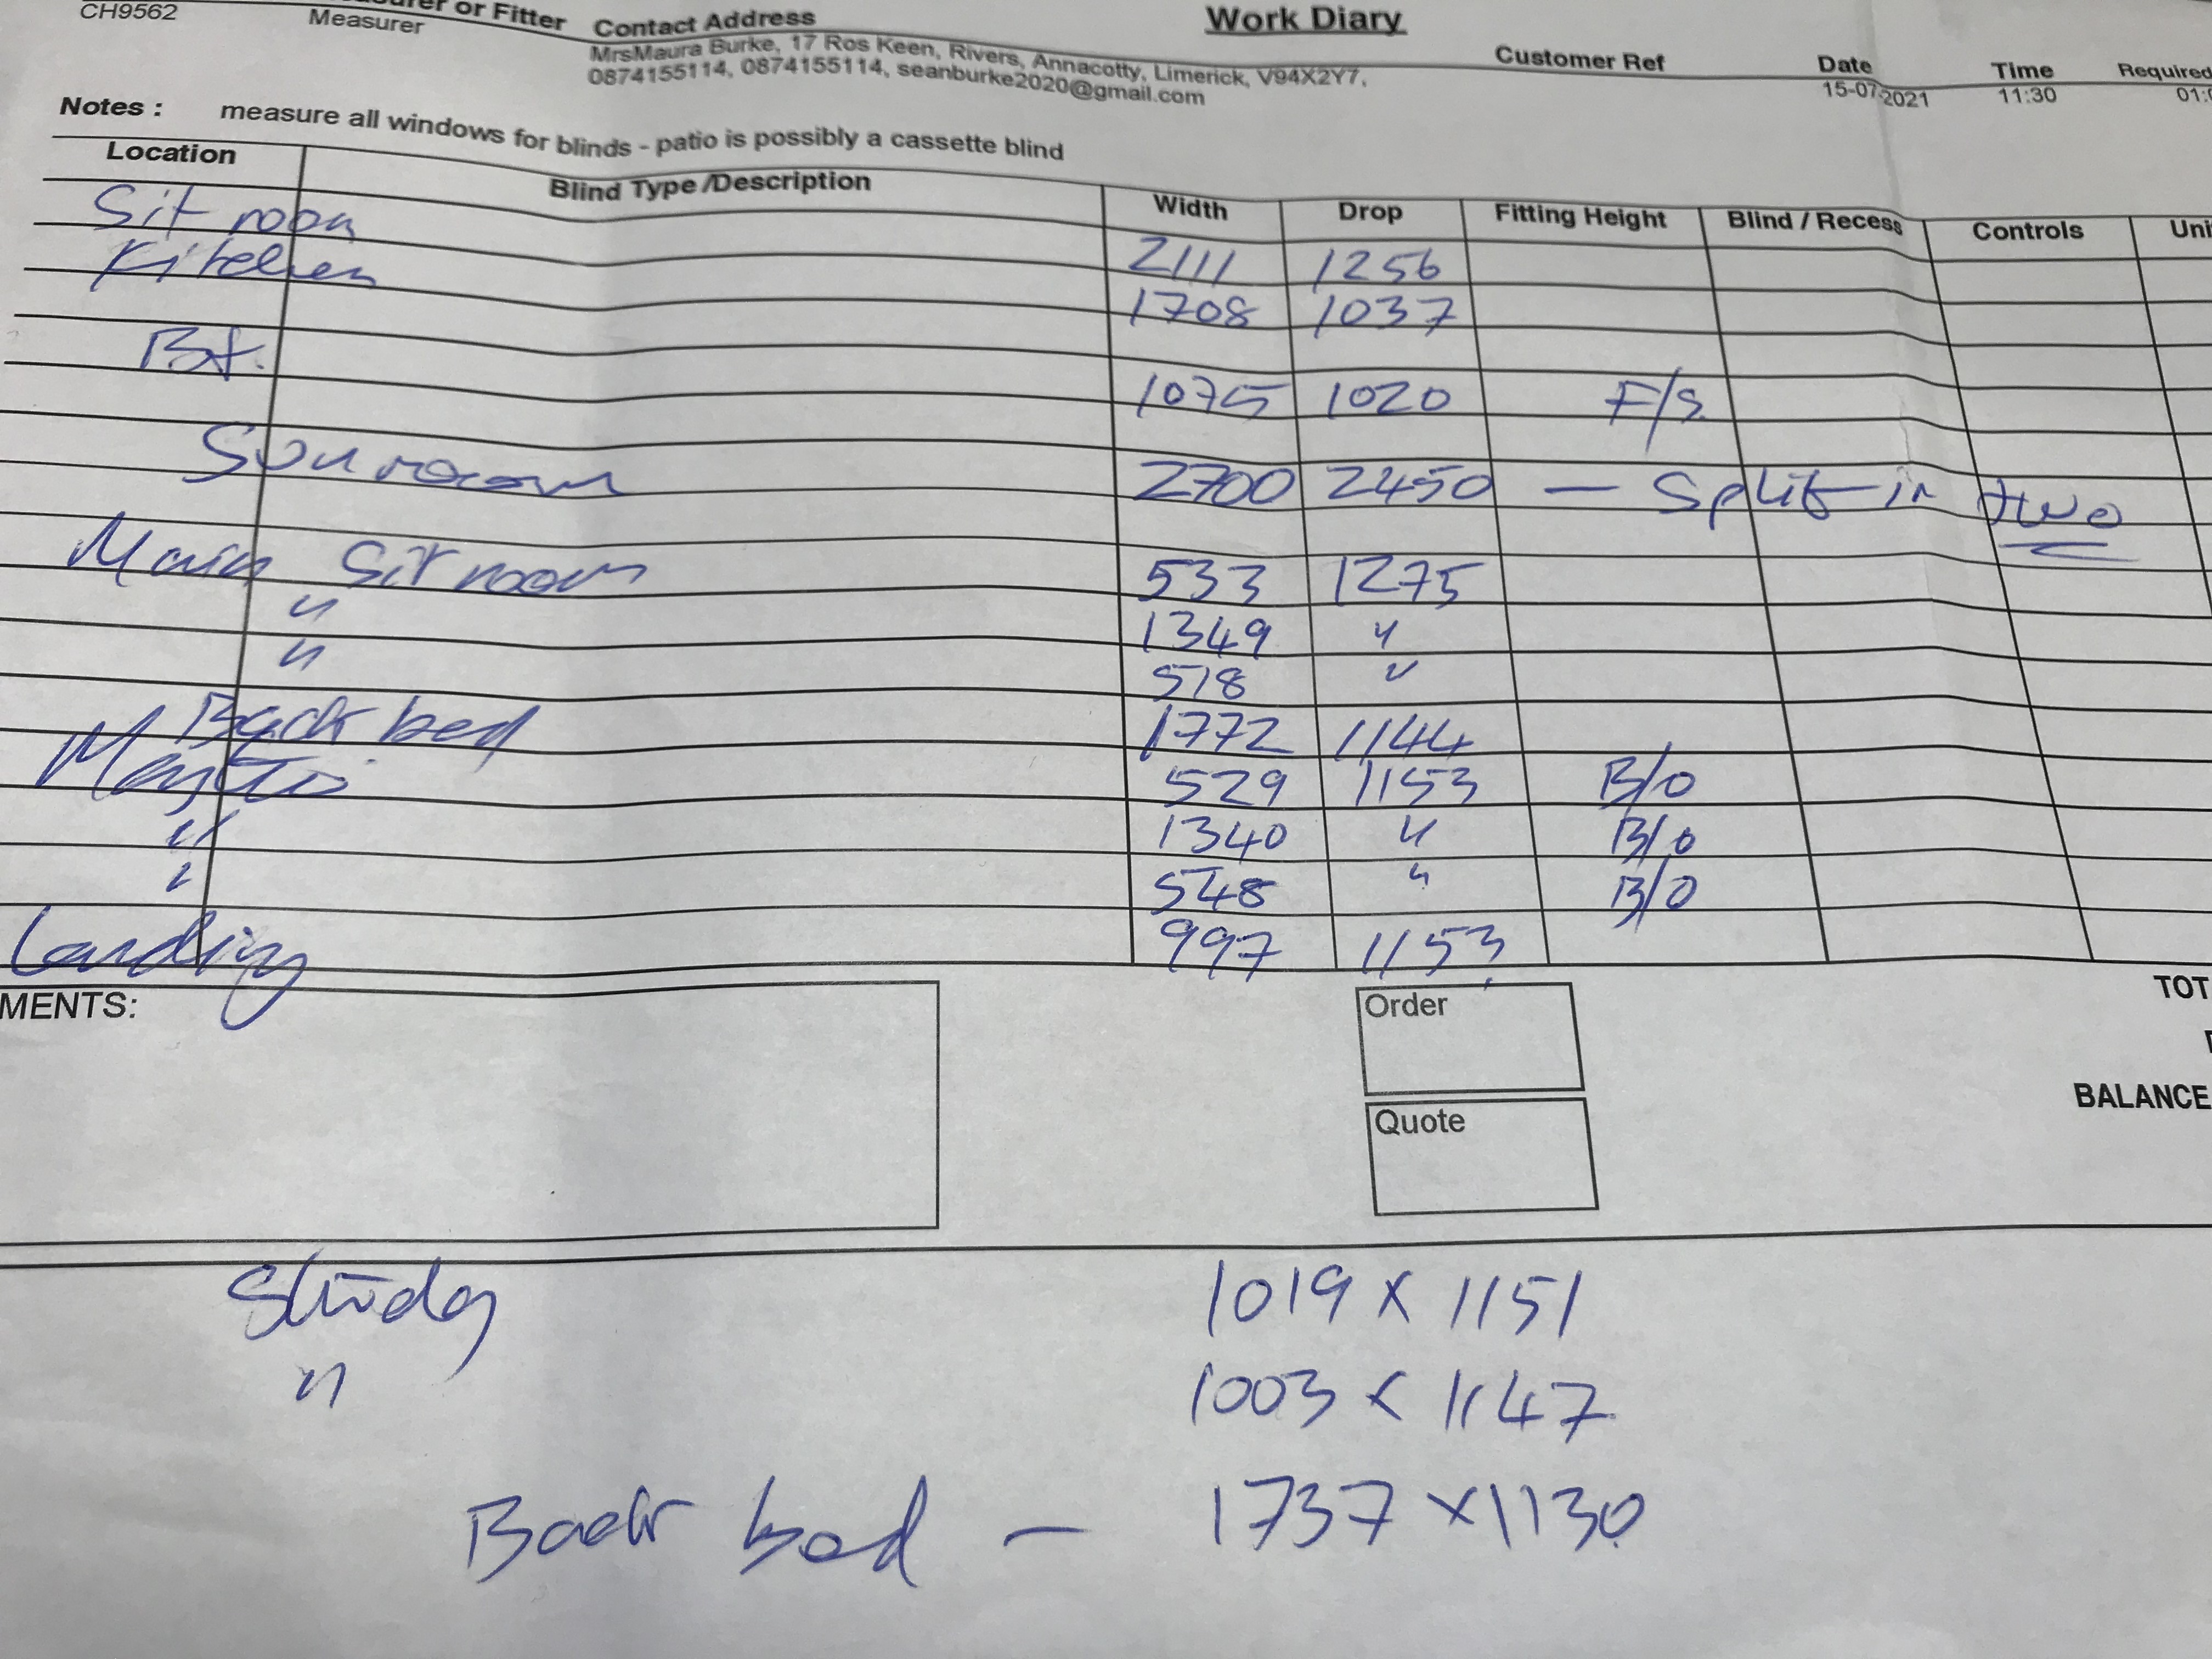 or Fitter Contact Address Work Diary
CH9562 Measurer MrsMaura Burke, 17 Ros Keen, Rivers, Annacotty, Limerick, V94X2Y7, Customer Ref Date Time Required
0874155114, 0874155114, seanburke2020@gmail.com 15-07-2021 11:30
Notes : measure all windows for blinds - patio is possibly a cassette blind
Location Blind Type /Description Width Drop Fitting Height Blind / Recess Controls
Sit room 2111 1256
Kitchen 1708 1037
1075 1020 F/S
Sun room 2700 2450 — Split in two
Main Sit room 533 1275
" 1349 "
" 518 "
Back bed 1772 1144
Master 529 1153 B/O
" 1340 " B/O
" 548 " B/O
Landing 997 1153
MENTS: Order TOT
Quote BALANCE
Study 1019 x 1151
" 1003 x 1147
Back bed — 1737 x 1130